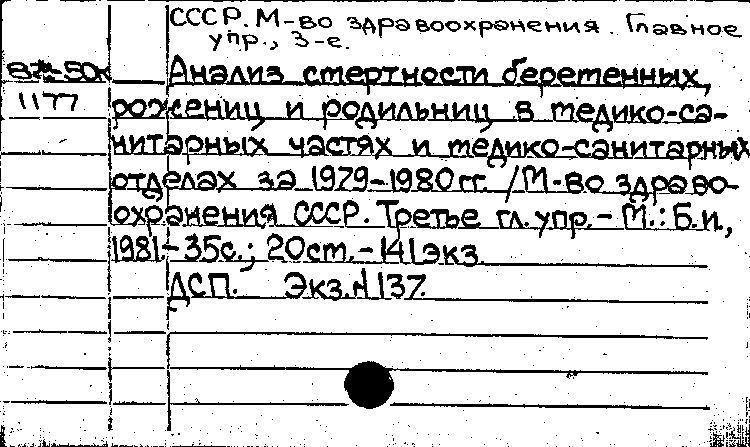 СССР. М-во здравоохранения. Главное
упр., 3-е.
Анализ смертности беременных,
1177 рожениц и родильниц в медико-са-
нитарных частях и медико-санитарных
отделах за 1979-1980 гг. /М-во здраво-
охранения СССР. Третье гл. упр. - М.: Б.и.,
1981. - 35с.; 20см. - 141экз.
ДСП. Экз.N137.